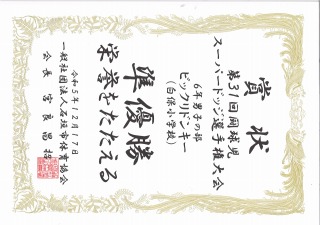 賞状
第31回闘球児
スーパードッジ選手権大会
6年男子の部
ビックリドンキー
(白保小学校)
準優勝
栄誉をたたえる
令和5年12月17日
一般社団法人石垣市体育協会
会長 宮良